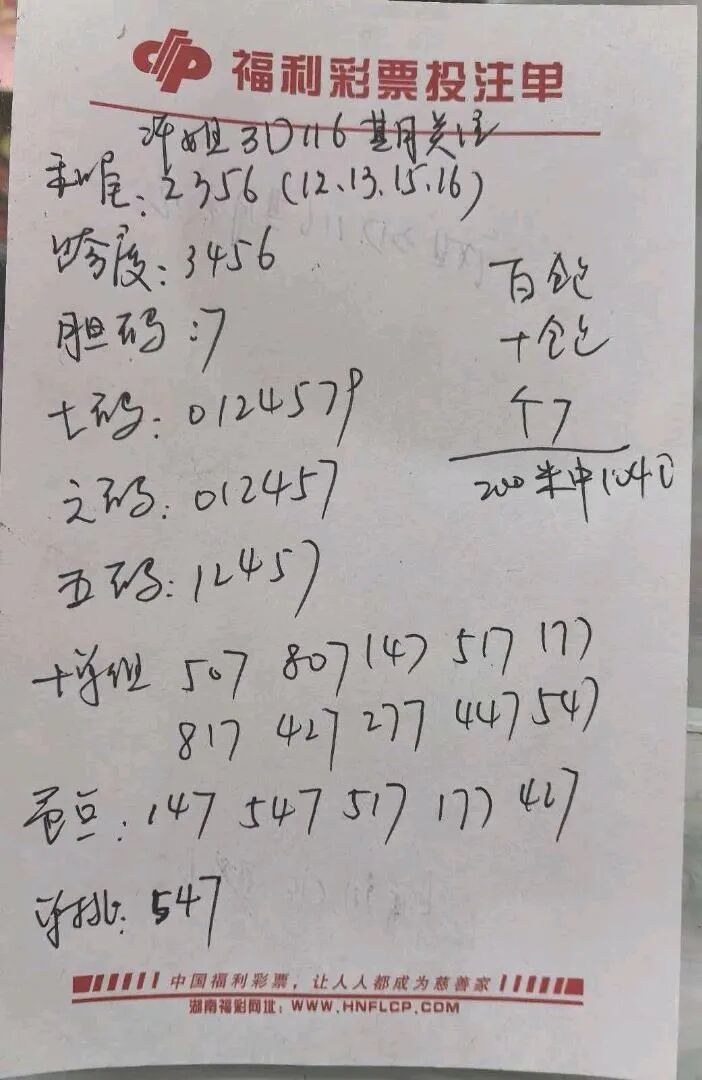 福利彩票投注单
许姐3D116期关注
和尾:2356(12.13.15.16)
跨度:3456
胆码:7
七码:0124579
六码:012457
五码:12457
百全包
十全包
个7
200米中1040
十单组 507 807 147 517 177
817 427 277 447 547
蚕豆:147 547 517 177 427
单挑:547
中国福利彩票，让人人都成为慈善家
湖南福彩网址：WWW.HNFLCP.COM